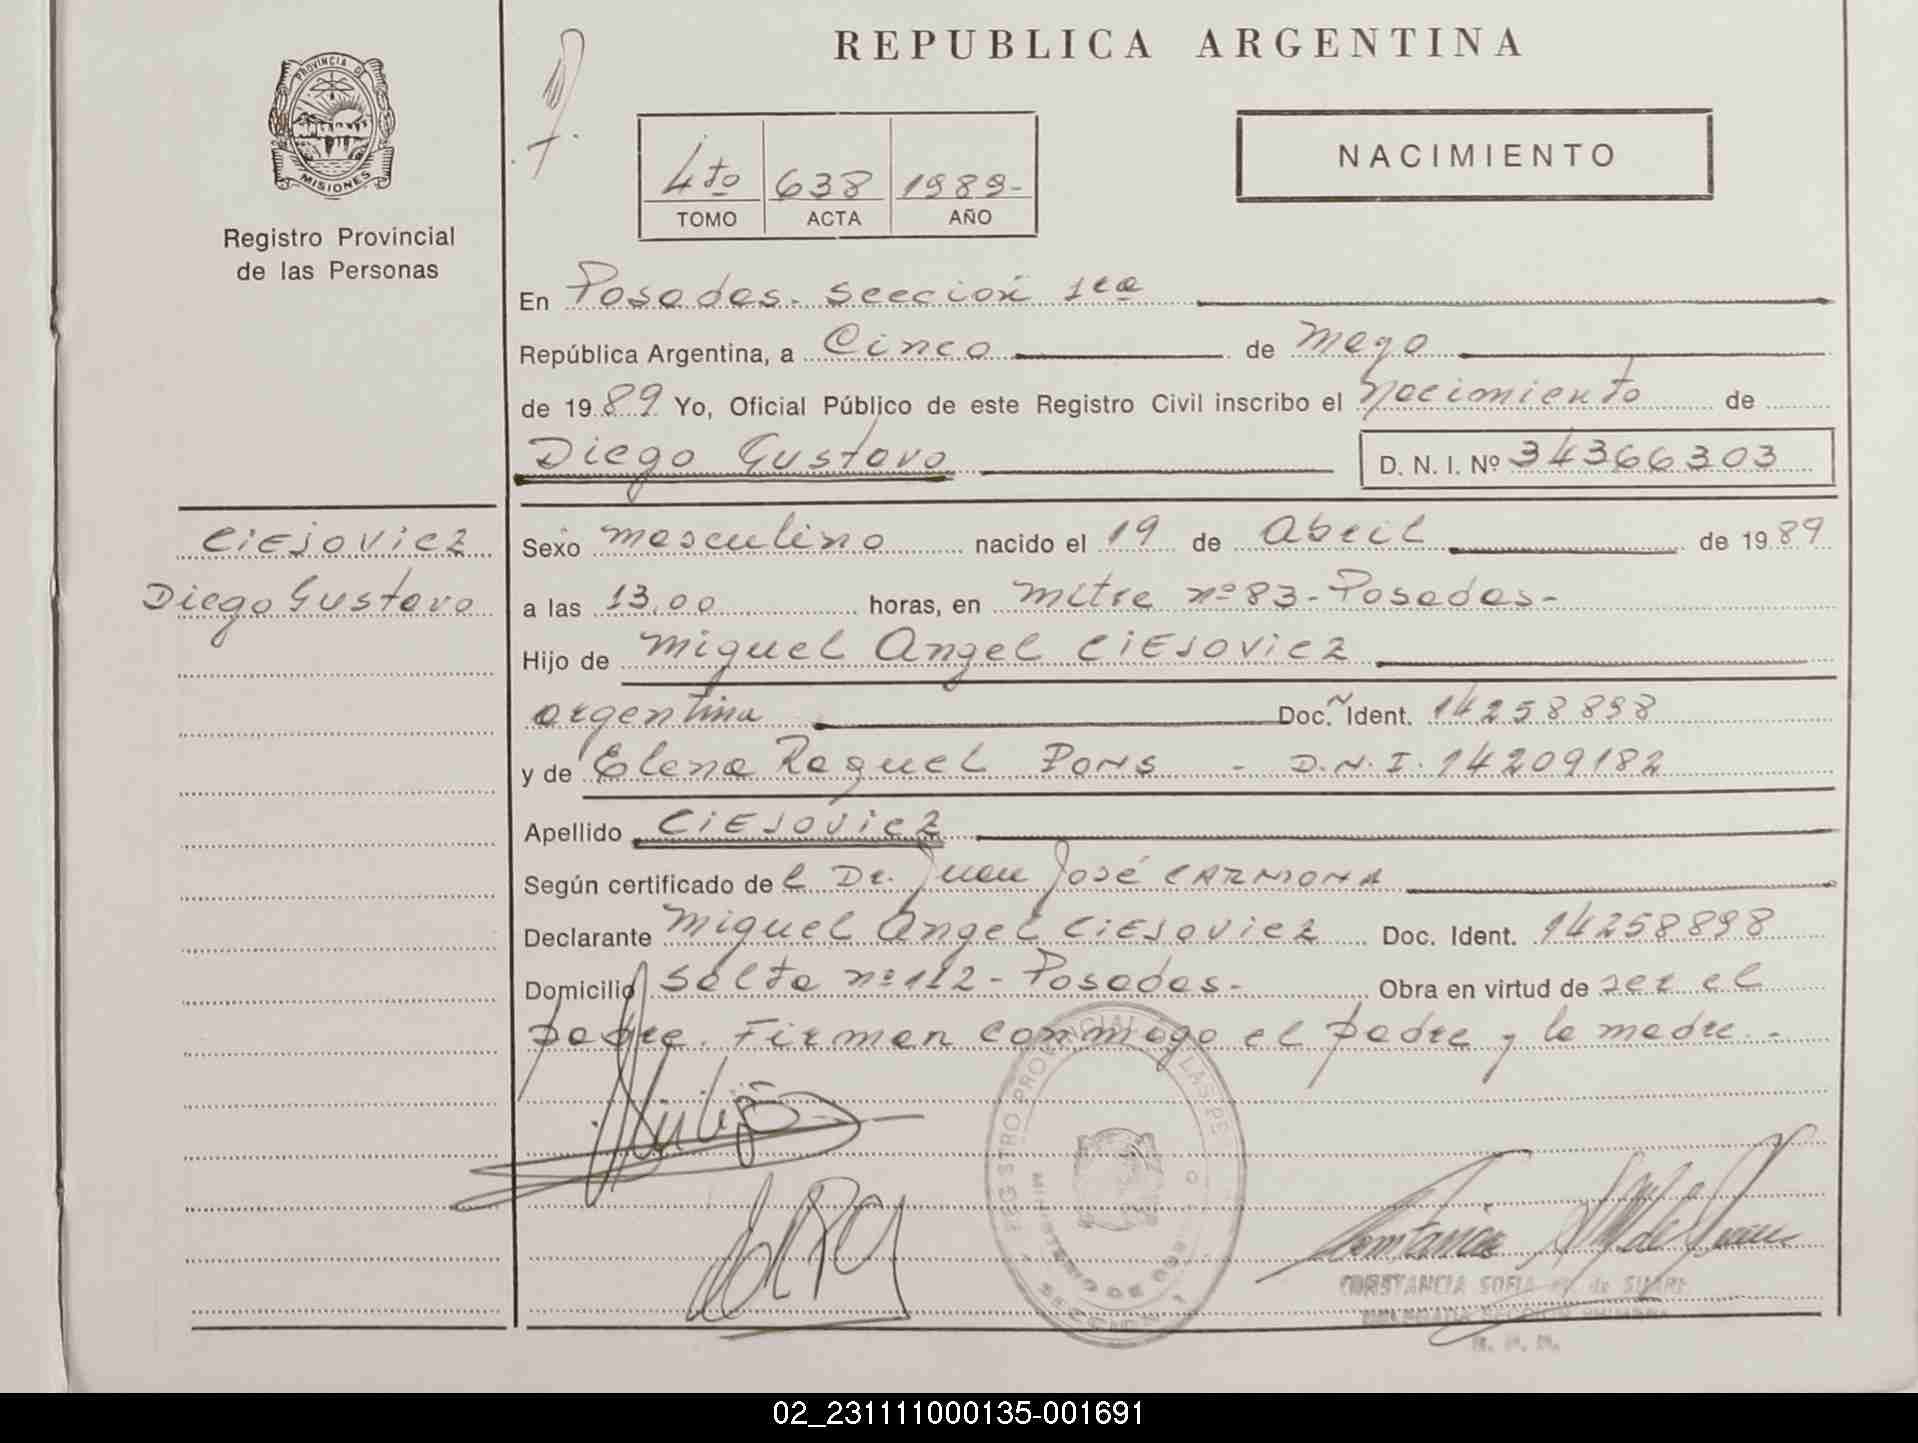 REPUBLICA ARGENTINA
PROVINCIA DE
MISIONES
Registro Provincial
de las Personas
4to 638 1989-
TOMO ACTA AÑO
NACIMIENTO
En Posadas. sección 1ra
República Argentina, a Cinco de Mayo
de 1989 Yo, Oficial Público de este Registro Civil inscribo el Nacimiento de
Diego Gustavo D. N. I. Nº 34366303
CIEJOVICZ
Diego Gustavo
Sexo masculino nacido el 19 de Abril de 1989
a las 13,00 horas, en Mitre nº 83-Posadas-
Hijo de Miguel Angel CIEJOVICZ
argentina Doc. Ident. 14258898
y de Elena Raquel PONS - D.N.I. 14209182
Apellido CIEJOVICZ
Según certificado del Dr. Juan José CARMONA
Declarante Miguel Angel CIEJOVICZ Doc. Ident. 14258898
Domicilio Salta nº 112-Posadas- Obra en virtud de ser el
padre. Firman conmigo el padre y la madre.-
REGISTRO PROVINCIAL DE LAS PE
CONSTANCIA SOFIA de SUARE
02_231111000135-001691